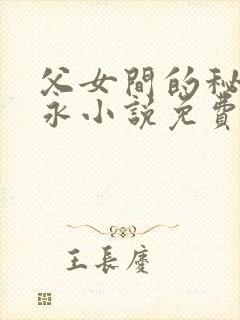 父女間的秘
永小説免費
王長慶